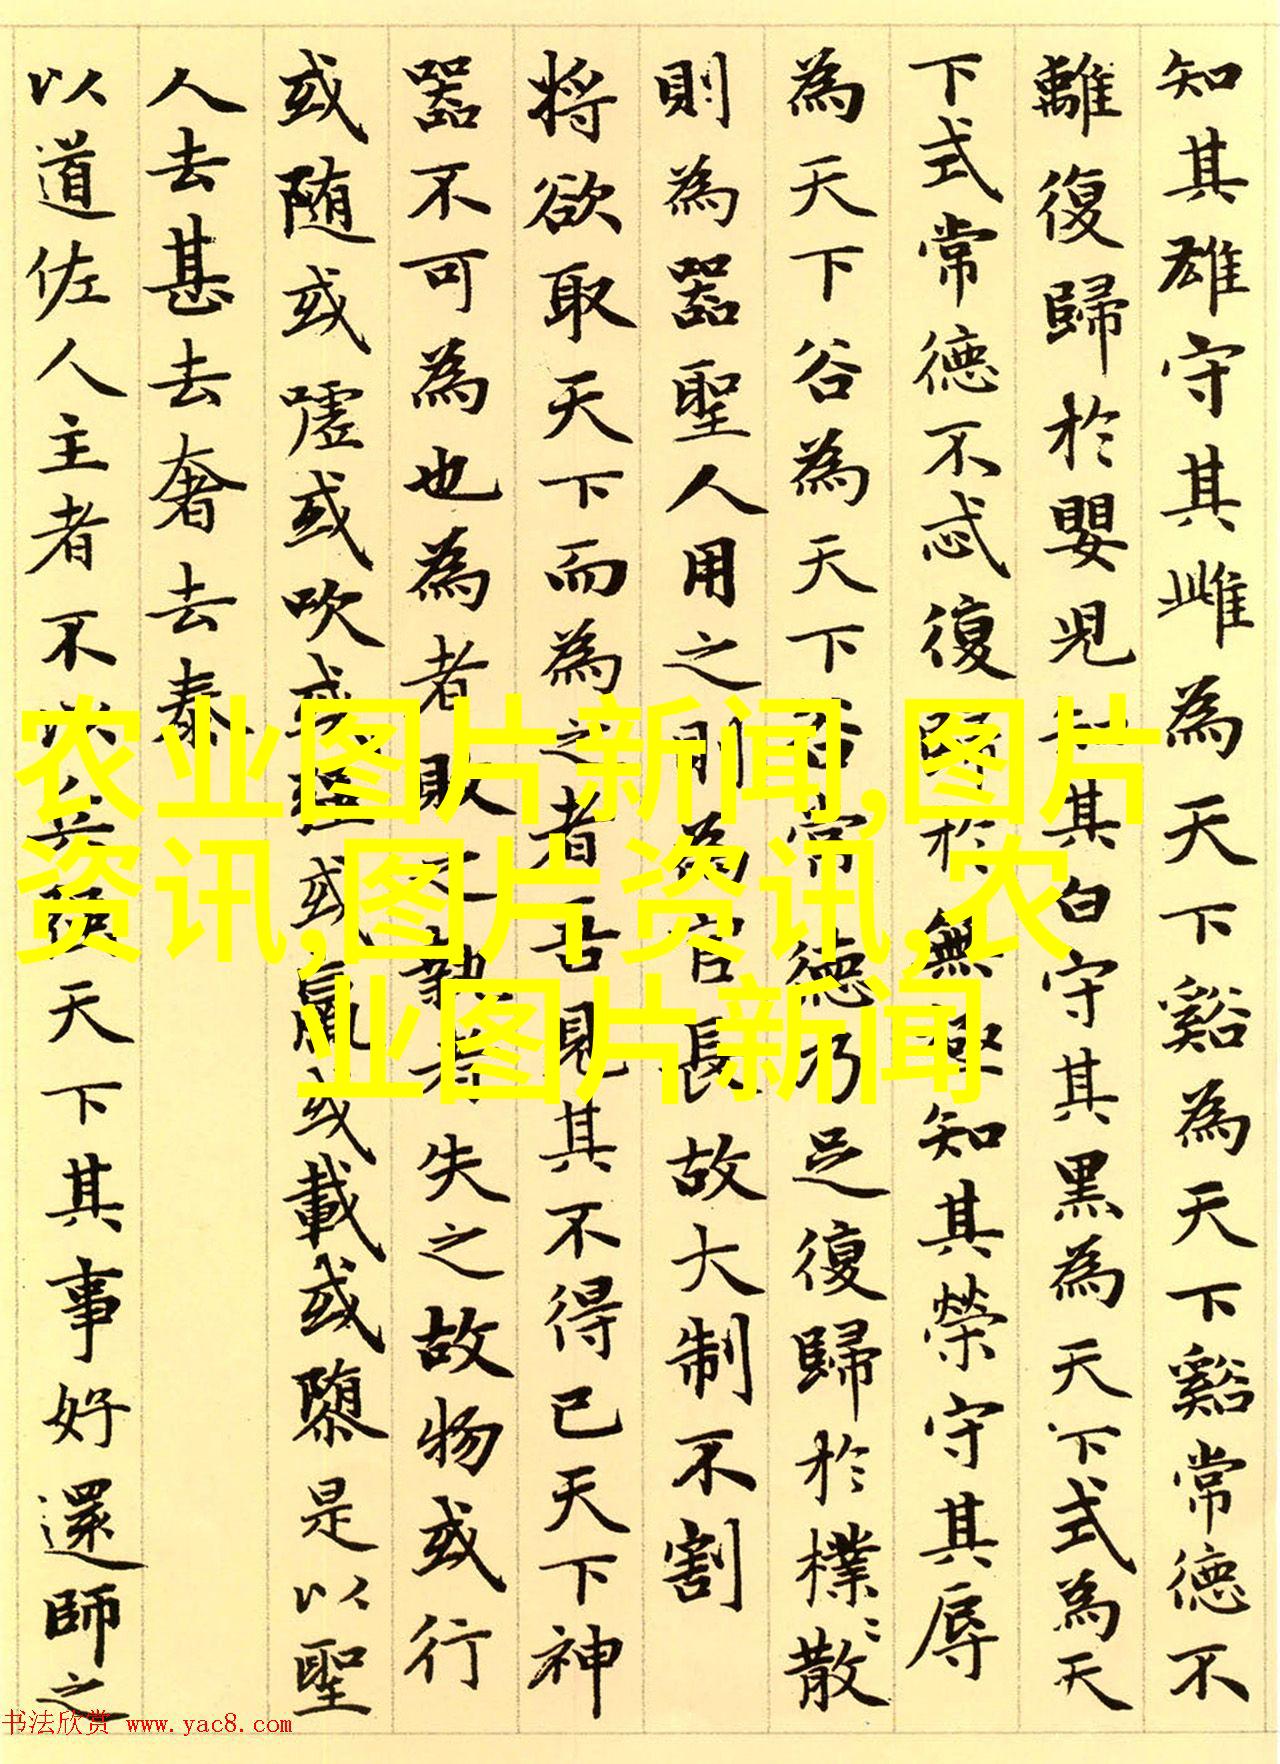 知其雄守其雌為天下谿為天下谿常德不
離復歸於嬰兒知其白守其黑為天下式為天
下式常德不忒復歸於無極知其榮守其辱
為天下谷為天下谷常德乃足復歸於樸〻散
則為器聖人用之則為官長故大制不割
将欲取天下而為之者吾見其不得已天下神
器不可為也為者敗之執者失之故物或行
或随或嘘或吹或强或羸或載或隳是以聖
人去甚去奢去泰
以道佐人主者不以兵强天下其事好還師之
农业图片新闻,图片
资讯,图片资讯,农
业图片新闻
书法欣赏 www.yac8.com